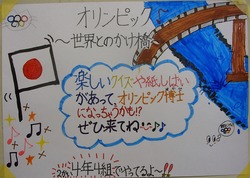 オリンピック
～世界とのかけ橋～
楽しいクイズや紙しばい
があって、オリンピック博士
になっちゃうかも!?
ぜひ来てね
4年4組でやってるよ～!!